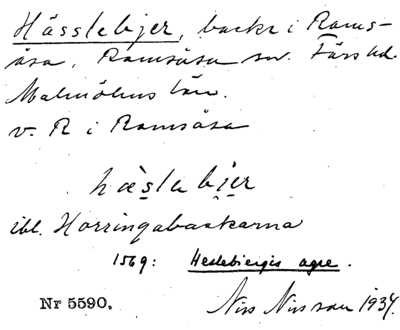 Hässlebjer, backe i Rams-
åsa, Ramsåsa sn. Färs hd.
Malmöhus län.
v. R i Ramsåsa
hæslebjer
ibl. Horringabackarna
1569: Heslebiergis agre.
Nr 5590.
Nils Nilsson 1934.